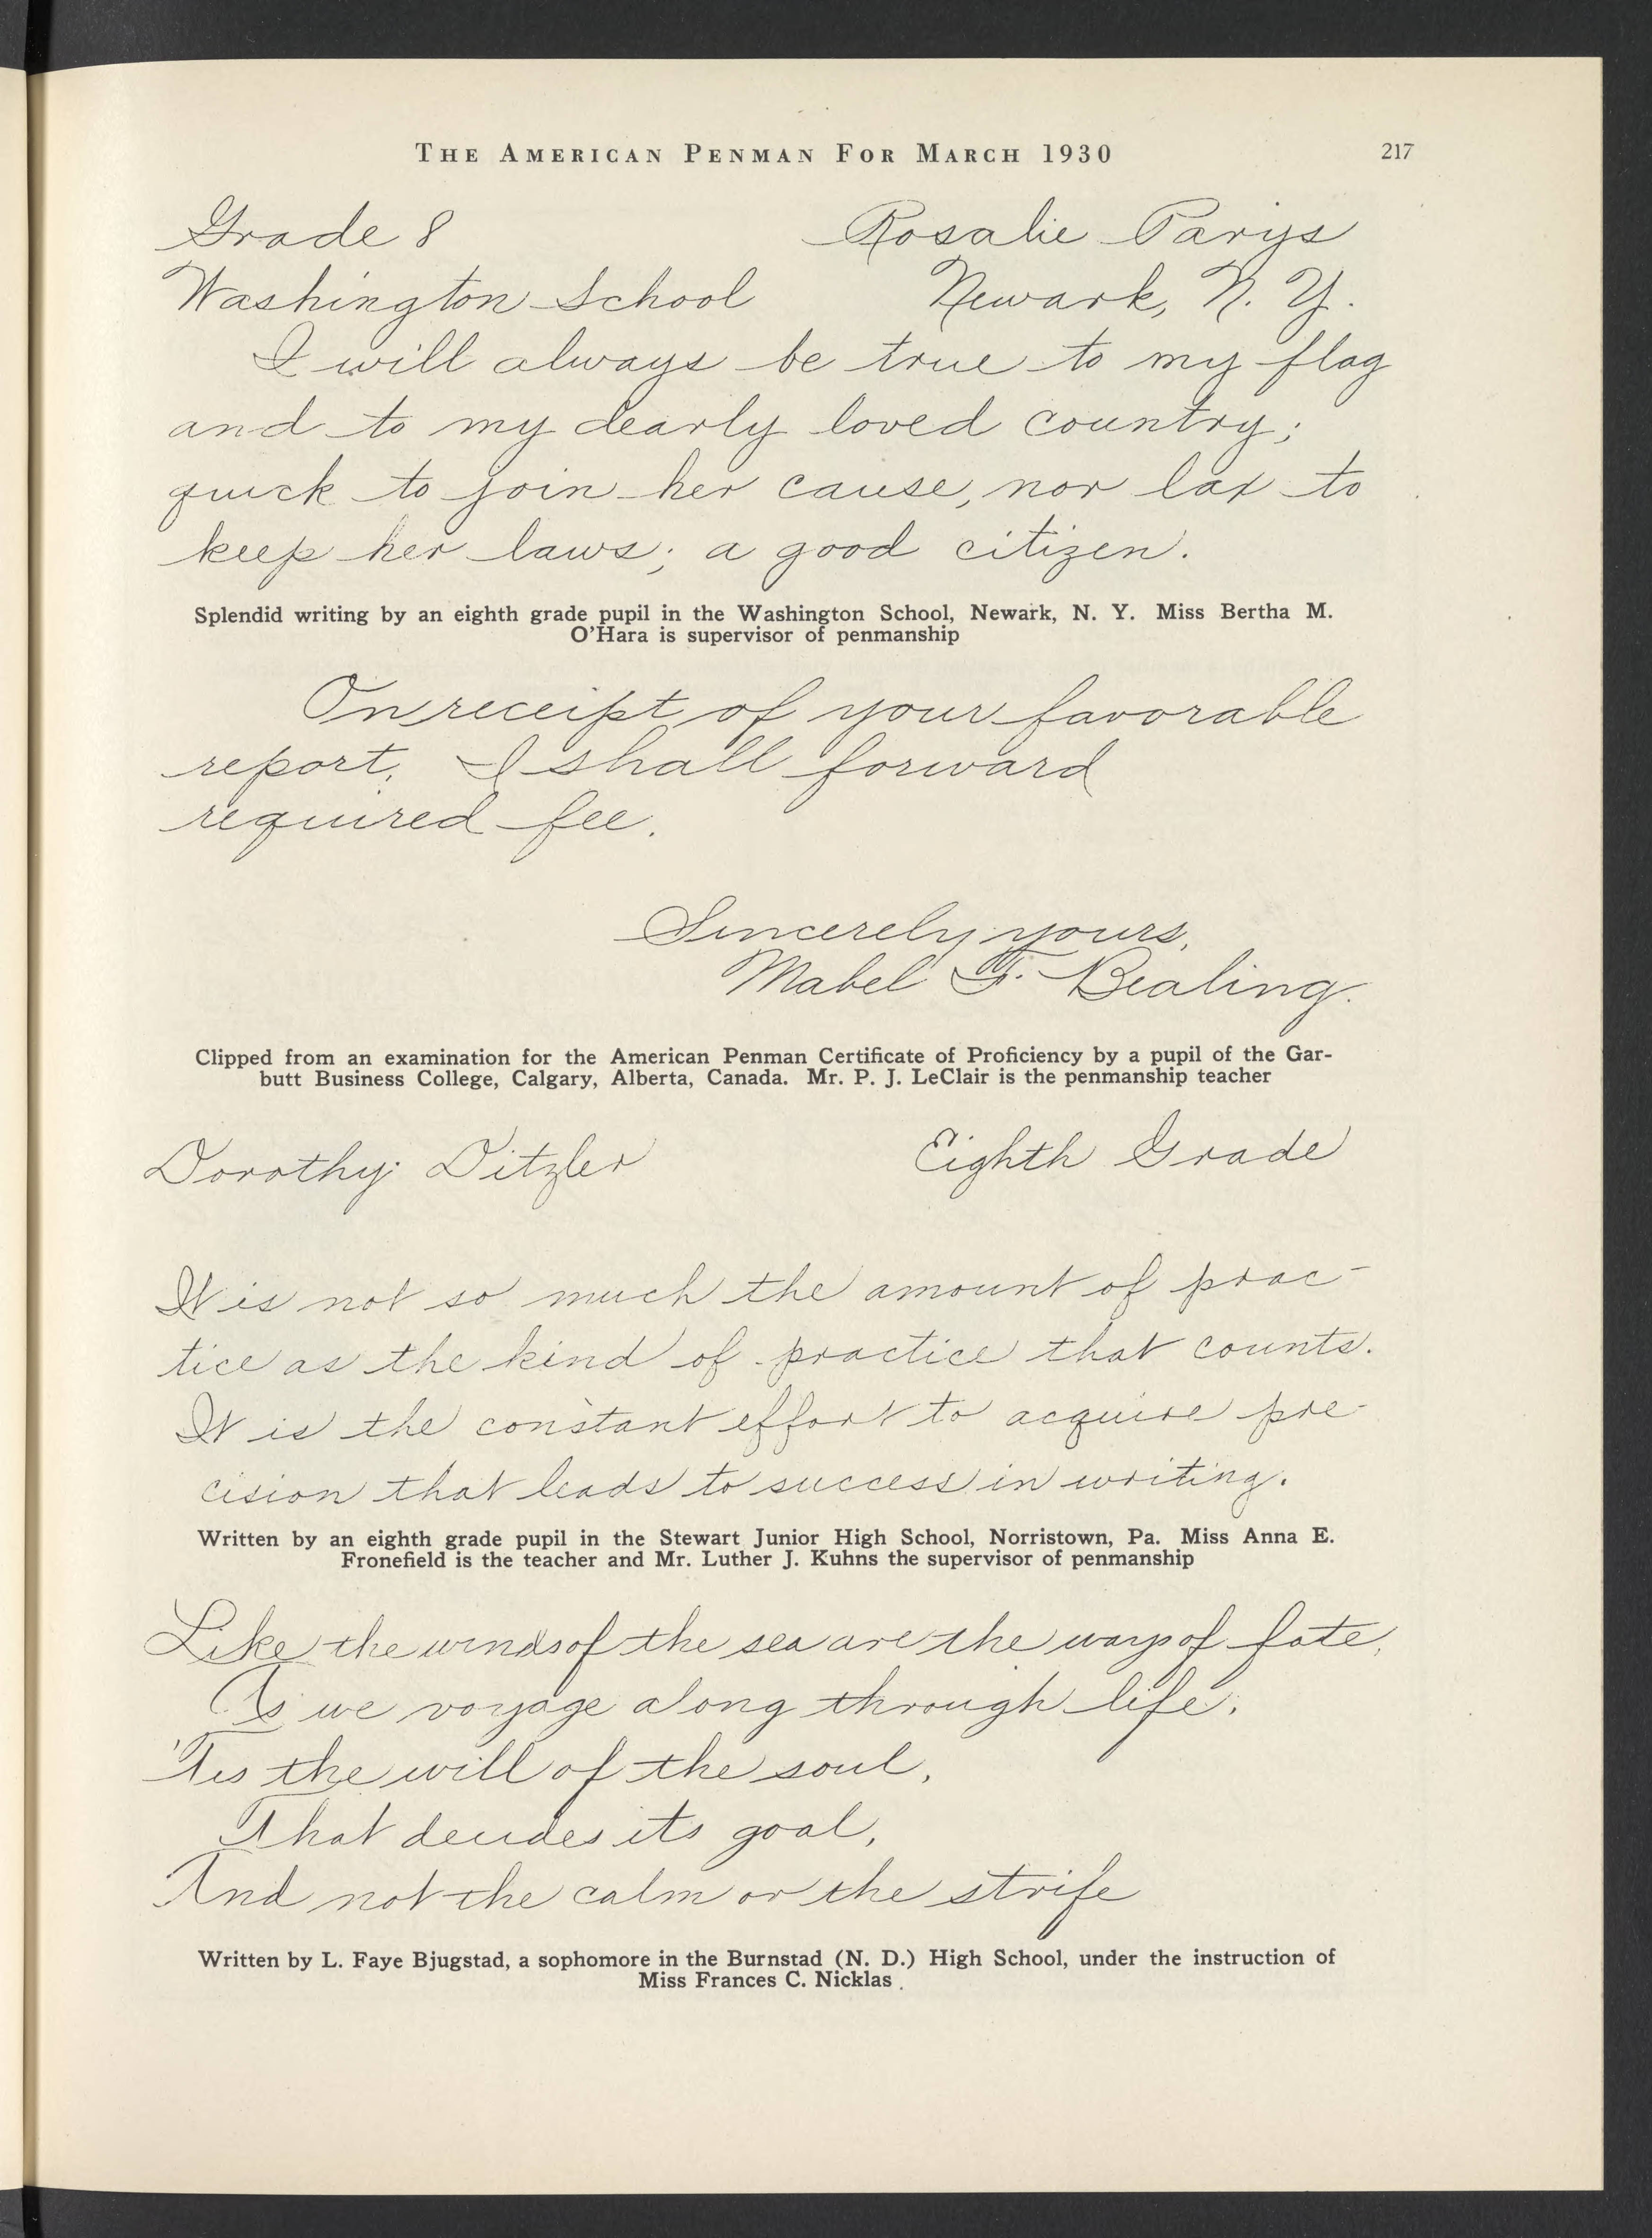 THE AMERICAN PENMAN FOR MARCH 1930 217
Grade 8 Rosalie Parys
Washington School Newark, N. Y.
I will always be true to my flag
and to my dearly loved country;
quick to join her cause, nor lax to
keep her laws; a good citizen.
Splendid writing by an eighth grade pupil in the Washington School, Newark, N. Y. Miss Bertha M.
O'Hara is supervisor of penmanship
On receipt of your favorable
report, I shall forward
required fee.
Sincerely yours,
Mabel F. Bealing.
Clipped from an examination for the American Penman Certificate of Proficiency by a pupil of the Gar-
butt Business College, Calgary, Alberta, Canada. Mr. P. J. LeClair is the penmanship teacher
Dorothy Ditzler Eighth Grade
It is not so much the amount of prac-
tice as the kind of practice that counts.
It is the constant effort to acquire pre-
cision that leads to success in writing.
Written by an eighth grade pupil in the Stewart Junior High School, Norristown, Pa. Miss Anna E.
Fronefield is the teacher and Mr. Luther J. Kuhns the supervisor of penmanship
Like the winds of the sea are the ways of fate,
As we voyage along through life,
'Tis the will of the soul,
That decides its goal,
And not the calm or the strife
Written by L. Faye Bjugstad, a sophomore in the Burnstad (N. D.) High School, under the instruction of
Miss Frances C. Nicklas